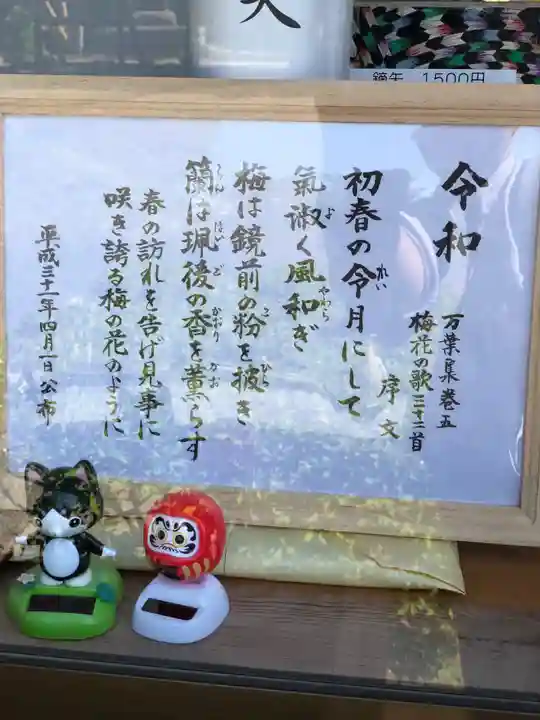 矢
鏑矢 1500円
令和
万葉集巻五
梅花の歌三十二首
序文
初春の令月にして
れい
氣淑く風和ぎ
よ
やわら
梅は鏡前の粉を披き
こ
ひら
蘭は珮後の香を薫らす
らん
はいご
かおり
かお
春の訪れを告げ見事に
咲き誇る梅の花のように
平成三十一年四月一日公布